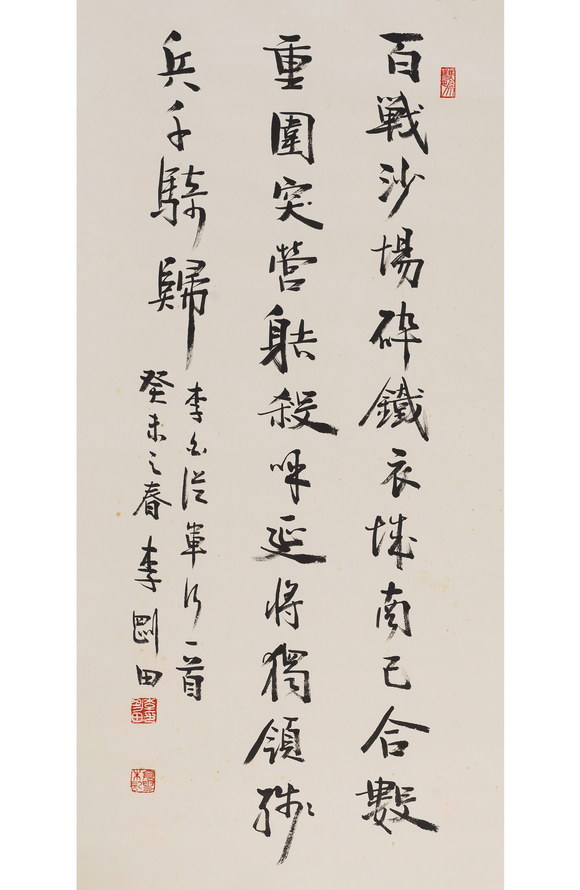 百戦沙場碎鐵衣城南已合數
重圍突營射殺呼延將獨領殘
兵千騎歸
李白從軍行一首
癸未之春李剛田